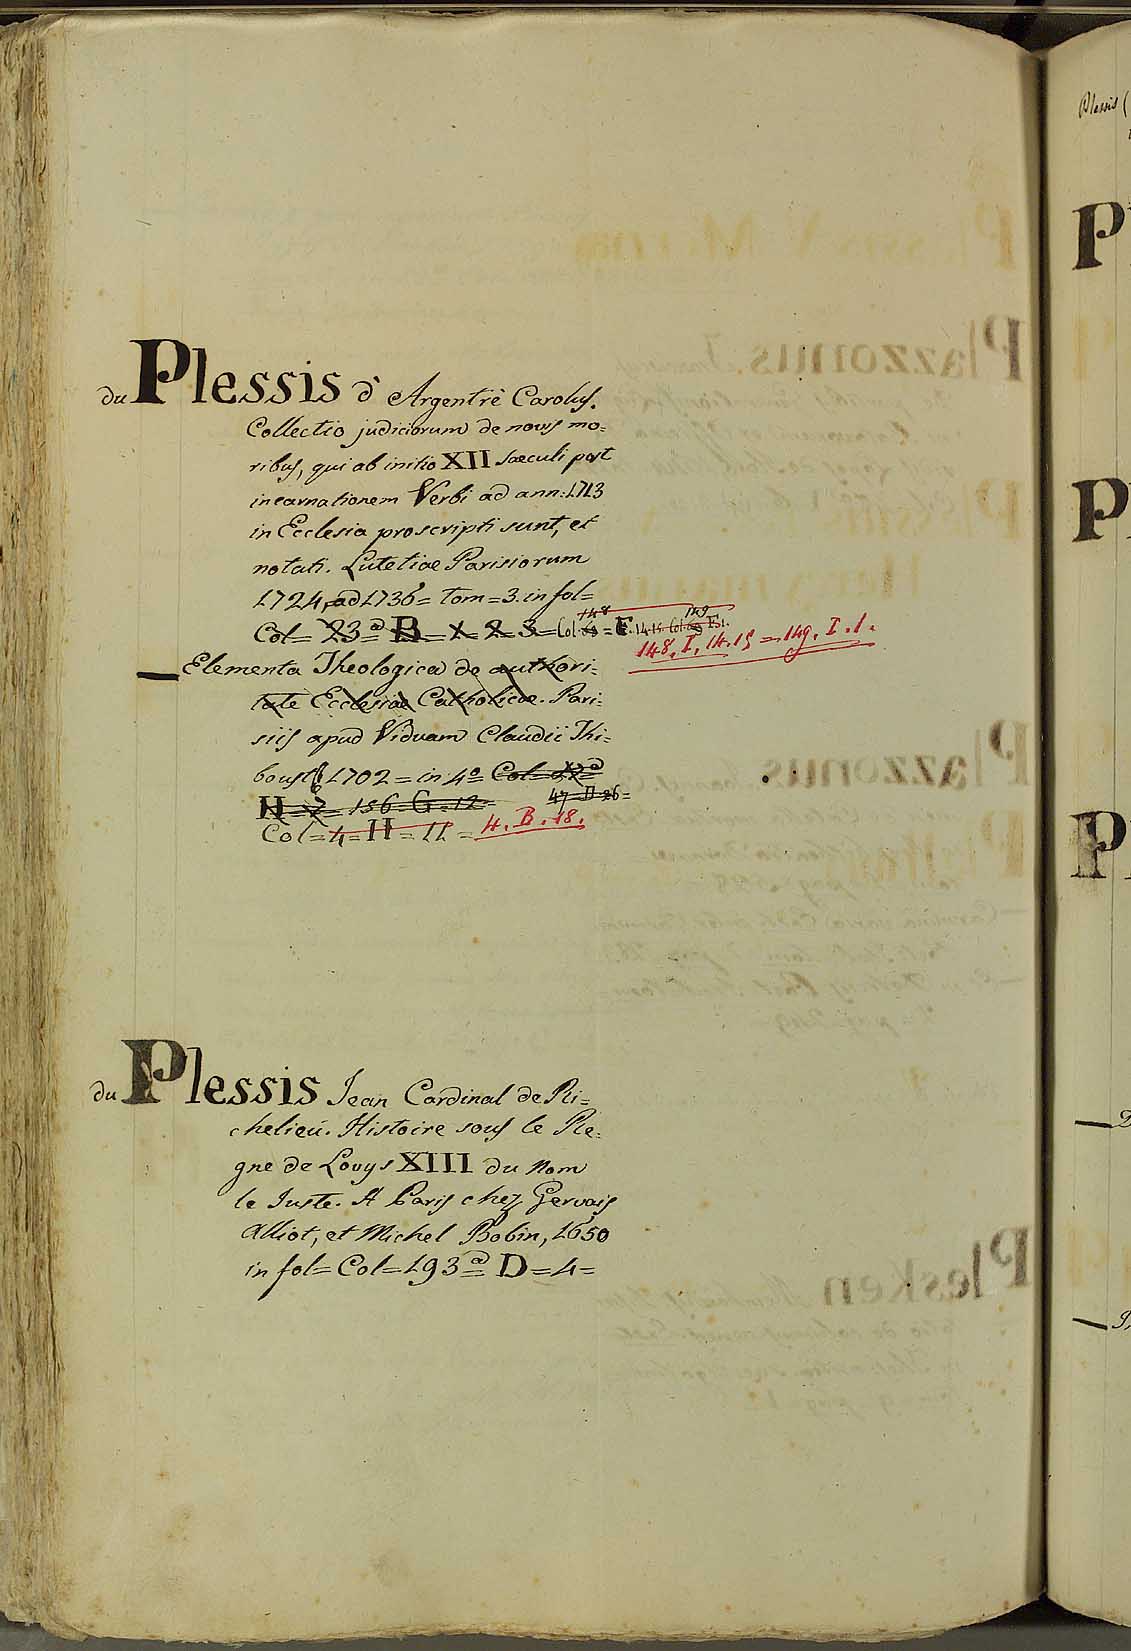 du Plessis d' Argentrè Carolus.
Collectio judiciorum de novis mo=
ribus, qui ab initio XII saeculi post
incarnationem Verbi ad ann: 1713
in Ecclesia proscripti sunt, et
notati. Lutetiae Parisiorum
1724, ad 1736 = tom = 3. in fol =
Col = 23 = B = 1 = 2 = 3 = Col. = E. 14.15. Col. E. 1.
148 149
148. I. 14.15 = 149. I. 1.
— Elementa Theologica de authori=
tate Ecclesiae Catholicae. Pari=
siis apud Viduam Claudii Thi=
boust 1702 = in 4o = Col =
H = 2 = 156 = G = 12 = 47 = H = 26 =
Col = 4 = H = 11 = 4. B. 18.
du Plessis Jean Cardinal de Ri=
chelieu. Histoire sous le Re=
gne de Louys XIII du Nom
le Juste. A Paris chez Gervais
Alliot, et Michel Bobin, 1650
in fol = Col = 193 a = D = 4 =
Plessis (